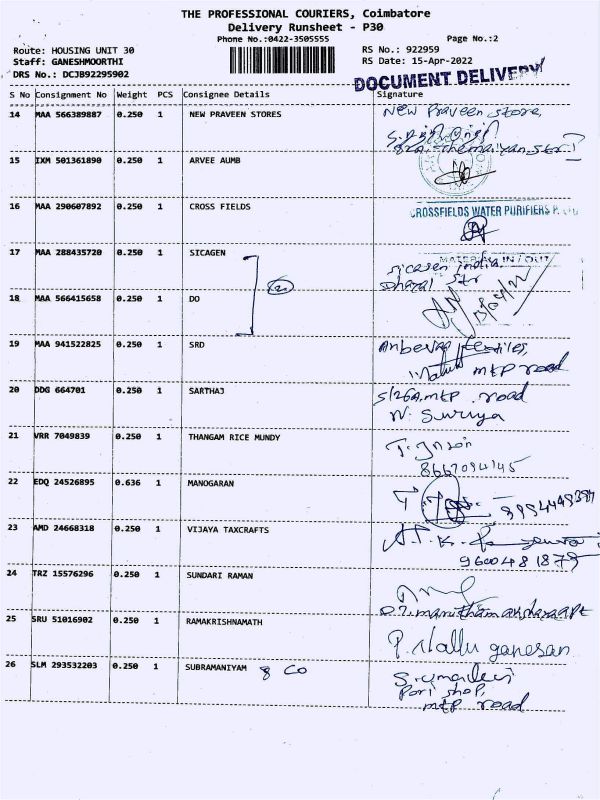 THE PROFESSIONAL COURIERS, Coimbatore
Delivery Runsheet - P30
Phone No.:0422-3505555
Page No.:2
Route: HOUSING UNIT 30
RS No.: 922959
Staff: GANESHMOORTHI
RS Date: 15-Apr-2022
DRS No.: DCJB92295902
DOCUMENT DELIVERY
S No Consignment No Weight PCS Consignee Details Signature
14 MAA 566389887 0.250 1 NEW PRAVEEN STORES New Praveen Store,
15 IXM 501361890 0.250 1 ARVEE AUMB
16 MAA 290607892 0.250 1 CROSS FIELDS CROSSFIELDS WATER PURIFIERS P.
17 MAA 288435720 0.250 1 SICAGEN MATERIAL IN / OUT
India
18 MAA 566415658 0.250 1 DO
19 MAA 941522825 0.250 1 SRD
mtp road
20 DDG 664701 0.250 1 SARTHAJ 5/26A, mtp. road
N. Suruya
21 VRR 7049839 0.250 1 THANGAM RICE MUNDY
8667094145
22 EDQ 24526895 0.636 1 MANOGARAN
23 AMD 24668318 0.250 1 VIJAYA TAXCRAFTS A. K.
9600481879
24 TRZ 15576296 0.250 1 SUNDARI RAMAN
25 SRU 51016902 0.250 1 RAMAKRISHNAMATH P. Nallu ganesan
26 SLM 293532203 0.250 1 SUBRAMANIYAM & CO S. Umadevi
Pori shop,
mtp road